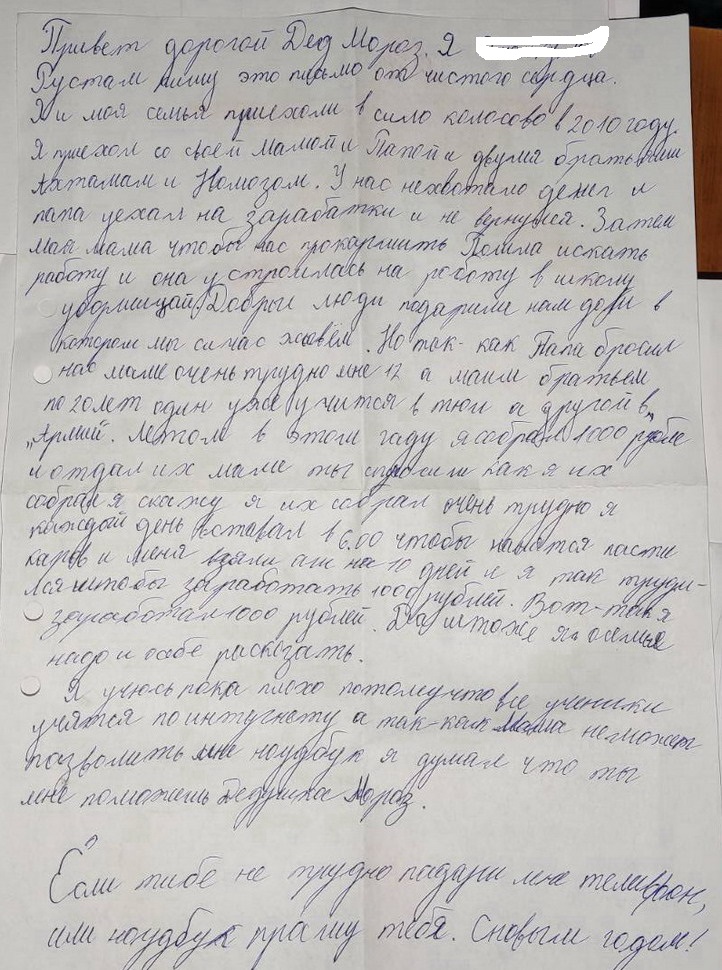 Привет дорогой Дед Мороз. Я
Рустам пишу это письмо от чистого сердца.
Я и моя семья приехоли в сило колосово в 2010 году.
Я приехол со своей мамой и Папой и двумя братьями
Ахтамам и Номозом. У нас нехвотало денег и
папа уехал на зарабатки и не вернулся. Затем
маи мама чтобы нас прокармить Пошла искать
работу и она устроилась на роботу в школу
уборщицай. Добрыи люди подарили нам дом в
котором мы сичас живём. Но так-как Папа бросил
нас маме очень трудно мне 12 а маим братьем
по 20 лет один уже учится в тюи а другой в
"Армий. Летом в этом гаду я собрал 1000 рубле
и отдал их маме ты спросиш как я их
собрал я скажу я их собрал очень трудно я
каждый день вставал в 6.00 чтобы нанятся пасти
каров и меня взяли аш на 10 дней и я так труди-
лся штобы заработать 1000 рублей. Вот-так я
заработал 1000 рублей. Да што же я о семье
надо и осебе расказать.
Я учюсь пока плохо потомучто все ученики
учятся поинтугнету а так-как мама неможет
пазволить мне ноудбук я думал что ты
мне поможешь Дедушка Мороз.
Если тибе не трудно падари мне телифон,
или ноудбук прашу тебя. Сновым годом!